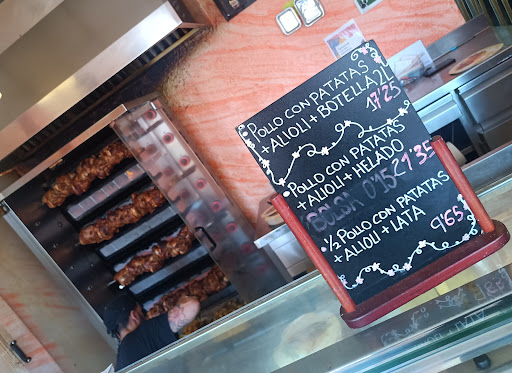 POLLO CON PATATAS
+ ALIOLI + BOTELLA 2L
17'25
• POLLO CON PATATAS
+ ALIOLI + HELADO
21'35
BOLSA 0'15
• ½ POLLO CON PATATAS
+ ALIOLI + LATA
9'65